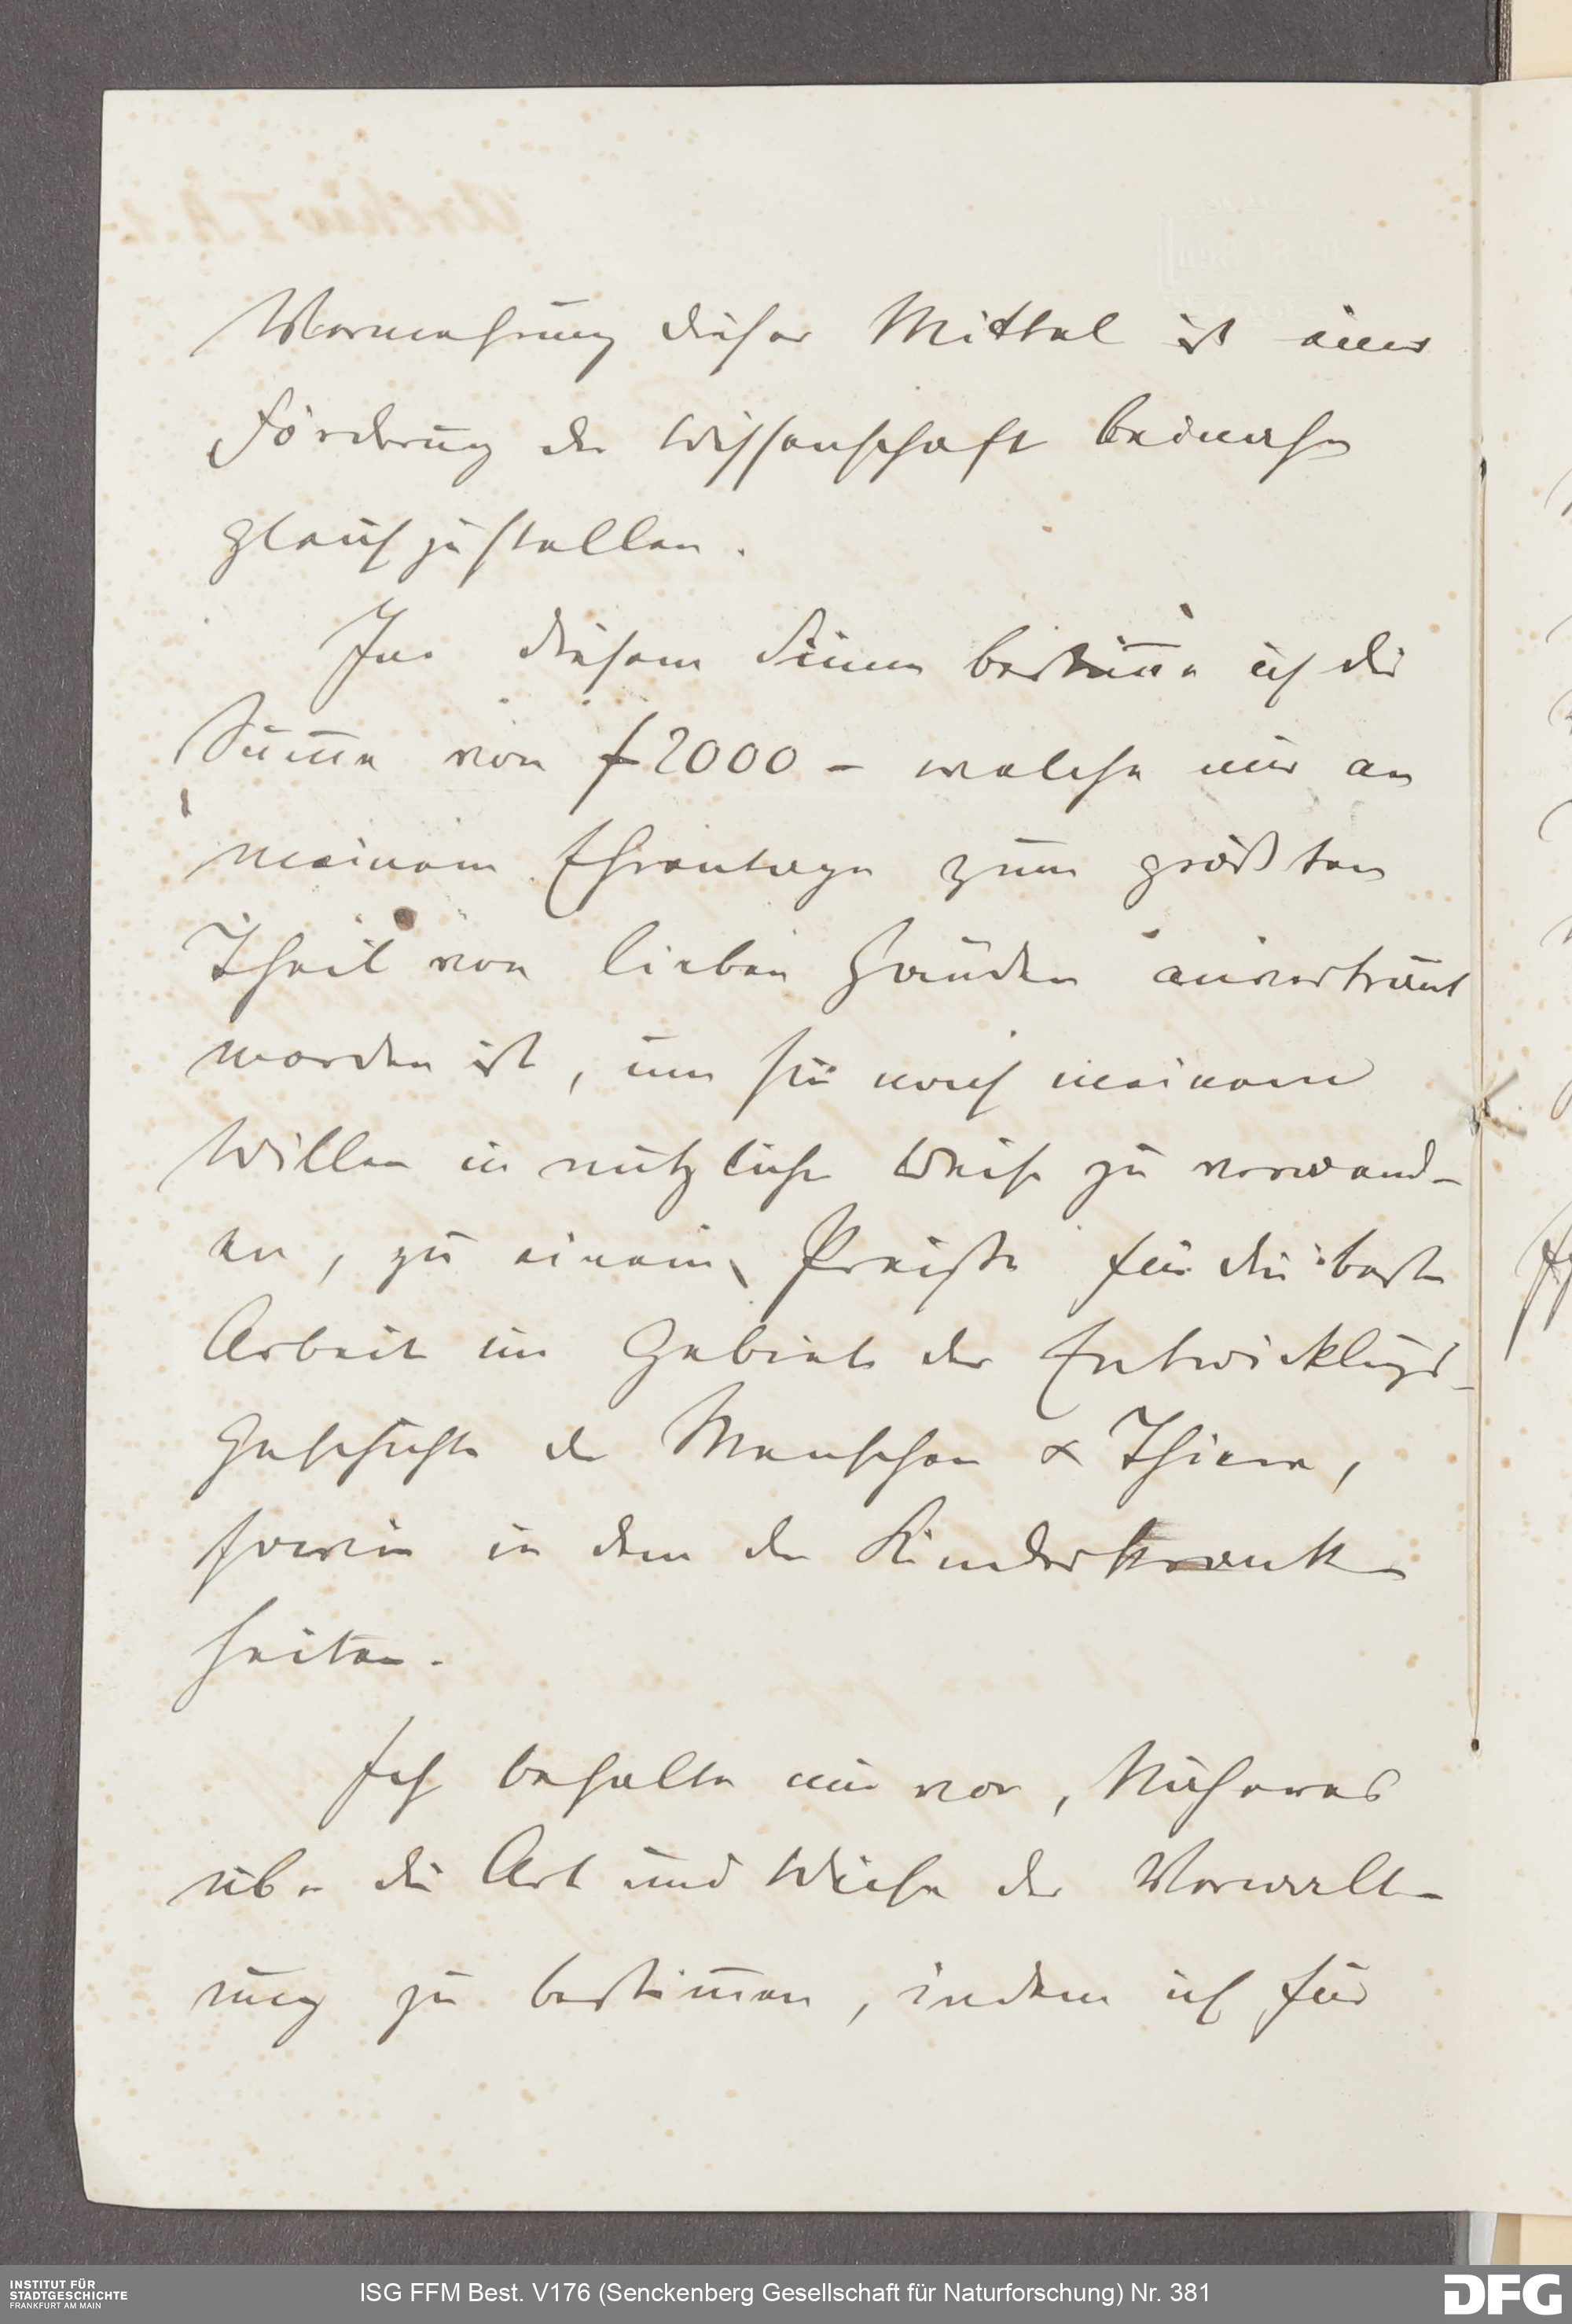 Vermehrung dieser Mittel ist einer
Förderung der Wissenschaft beinahe
gleich zu stellen.
In diesem Sinne bestimme ich die
Summe von f 2000 – welche mir an
meinem Ehrentage zum größten
Theil von lieben Händen anvertraut
worden ist, um sie nach meinem
Willen in nützlicher Weise zu verwend-
en, zu einem Preise für die beste
Arbeit im Gebiete der Entwicklungs-
geschichte der Menschen & Thiere,
sowie in dem der Kinderkrank
heiten.
Ich behalte mir vor, Näheres
über die Art und Weise der Verwalt-
ung zu bestimmen, indem ich für
INSTITUT FÜR
STADTGESCHICHTE
FRANKFURT AM MAIN
ISG FFM Best. V176 (Senckenberg Gesellschaft für Naturforschung) Nr. 381
DFG